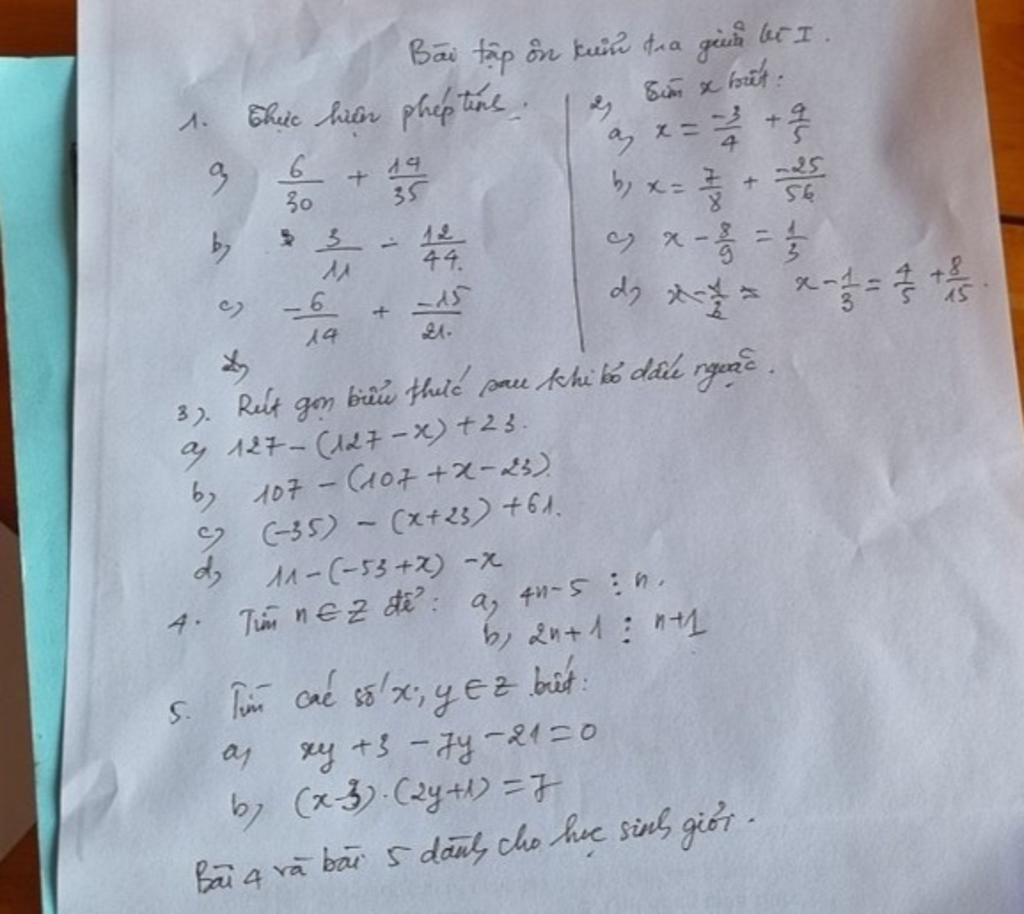 Bài tập ôn kiểm tra giữa kì I.
1. Thực hiện phép tính.
a, 6/30 + 14/35
b, 3/11 - 12/44.
c, -6/14 + -15/21.
2, Tìm x biết:
a, x = -3/4 + 9/5
b, x = 7/8 + -25/56
c, x - 8/9 = 1/3
d, x - 1/3 = 4/5 + 8/15.
3). Rút gọn biểu thức sau khi bỏ dấu ngoặc.
a, 127 - (127 - x) + 23.
b, 107 - (107 + x - 23)
c, (-35) - (x + 23) + 61.
d, 11 - (-53 + x) - x
4. Tìm n ∈ Z để: a, 4n - 5 ⋮ n.
b, 2n + 1 ⋮ n + 1
5. Tìm các số x, y ∈ Z biết:
a, xy + 3 - 7y - 21 = 0
b, (x - 3).(2y + 1) = 7
Bài 4 và bài 5 dành cho học sinh giỏi.